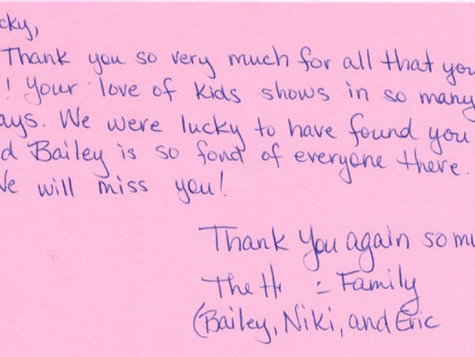 cky,
Thank you so very much for all that you
! Your love of kids shows in so many
ays. We were lucky to have found you
d Bailey is so fond of everyone there.
We will miss you!
Thank You again so mu
The H = Family
(Bailey, Niki, and Eric